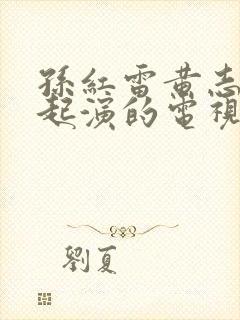 孫紅雷黃志
起演的電視
劉夏